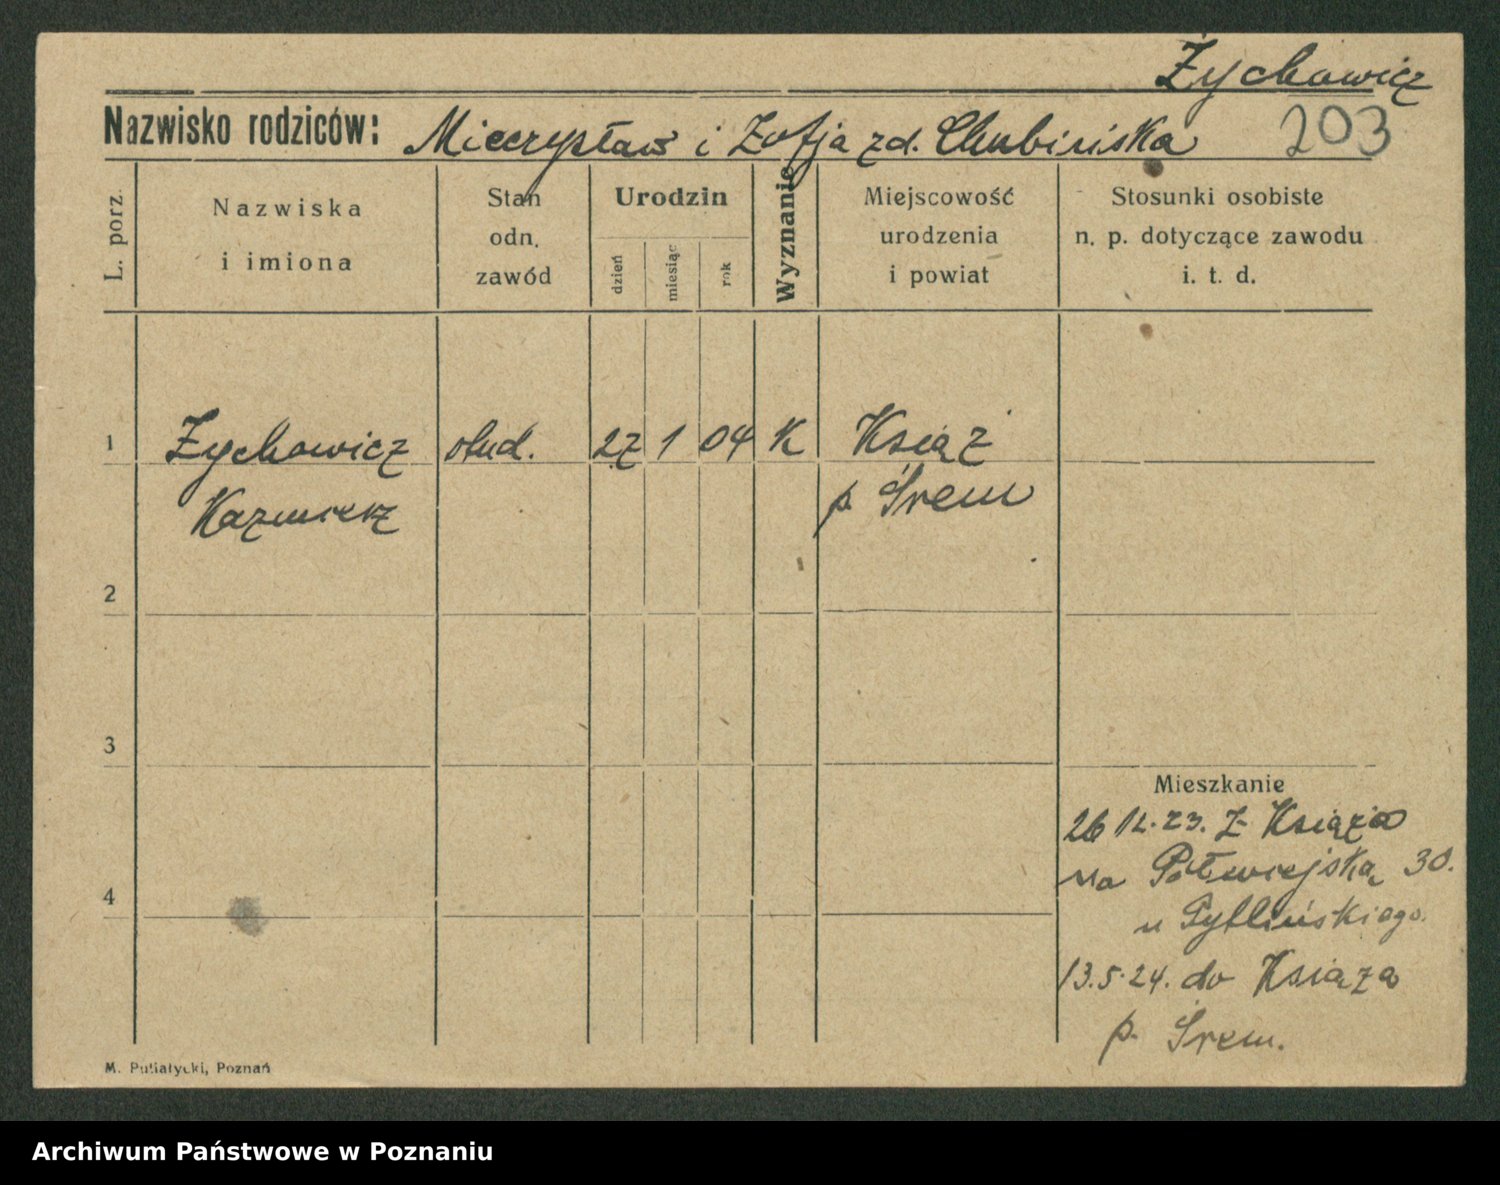 Żychowicz
Nazwisko rodziców: Mieczysław i Zofja zd. Chubińska 203
L. porz.
Nazwiska
i imiona
Stan
odn.
zawód
Urodzin
dzień
miesiąc
rok
Wyznanie
Miejscowość
urodzenia
i powiat
Stosunki osobiste
n. p. dotyczące zawodu
i. t. d.
1 Żychowicz stud. 27 1 04 K Książ
Kazmierz p. Śrem
2
3
Mieszkanie
26 12.23. z Książa
na Półwiejską 30.
4
u
13.5.24. do Książa
p. Śrem.
M. Putiatycki, Poznań
Archiwum Państwowe w Poznaniu